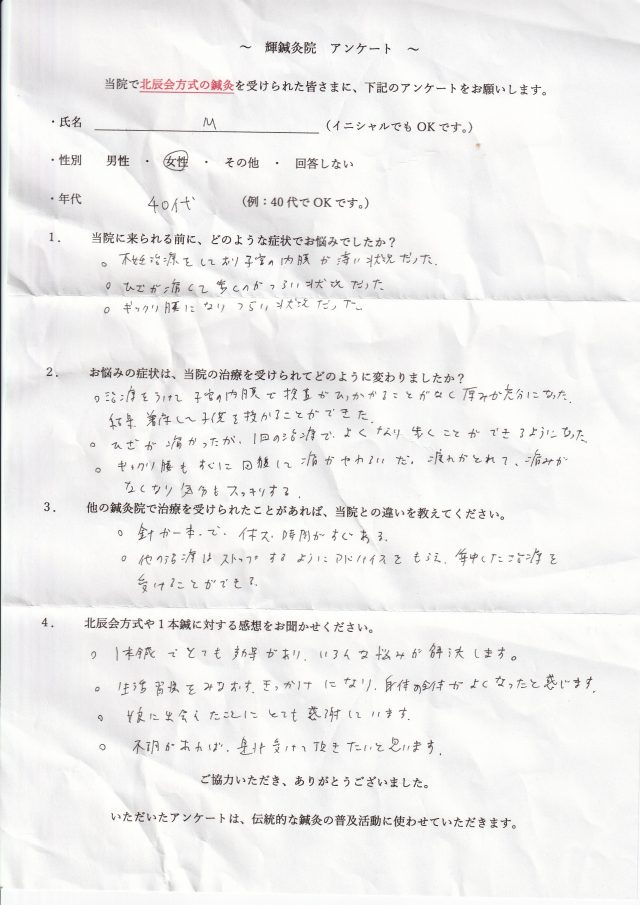 ～ 輝鍼灸院 アンケート ～
当院で北辰会方式の鍼灸を受けられた皆さまに、下記のアンケートをお願いします。
・氏名 M （イニシャルでもOKです。）
・性別 男性 ・ 女性 ・ その他 ・ 回答しない
・年代 40代 （例：40代でOKです。）
1． 当院に来られる前に、どのような症状でお悩みでしたか？
○ 不妊治療をしており子宮の内膜が薄い状況だった.
○ ひざが痛くて歩くのがつらい状況だった
○ ギックリ腰になりつらい状況だった.
2． お悩みの症状は、当院の治療を受けられてどのように変わりましたか？
○治療をうけて子宮の内膜で検査がひっかかることがなく厚みが充分になった.
結果 着床して子供を授かることができた.
○ ひざが痛かったが、1回の治療で、よくなり歩くことができるようになった.
○ ギックリ腰もすぐに回復して痛がやわらいだ。疲れがとれて、痛みが
なくなり気分もスッキリする.
3． 他の鍼灸院で治療を受けられたことがあれば、当院との違いを教えてください。
○ 針が一本で、休む時間がすごある.
○ 他の治療はストップするようにアドバイスをもらえ、集中した治療を
受けることができる.
4． 北辰会方式や1本鍼に対する感想をお聞かせください。
○ 1本鍼でとても効果があり、いろんな悩みが解決します。
○ 生活習慣をみなおすきっかけになり、身体の全体がよくなったと感じます.
○ に出会えたことにとても感謝しています.
○ 不調があれば、是非受けて頂きたいと思います.
ご協力いただき、ありがとうございました。
いただいたアンケートは、伝統的な鍼灸の普及活動に使わせていただきます。